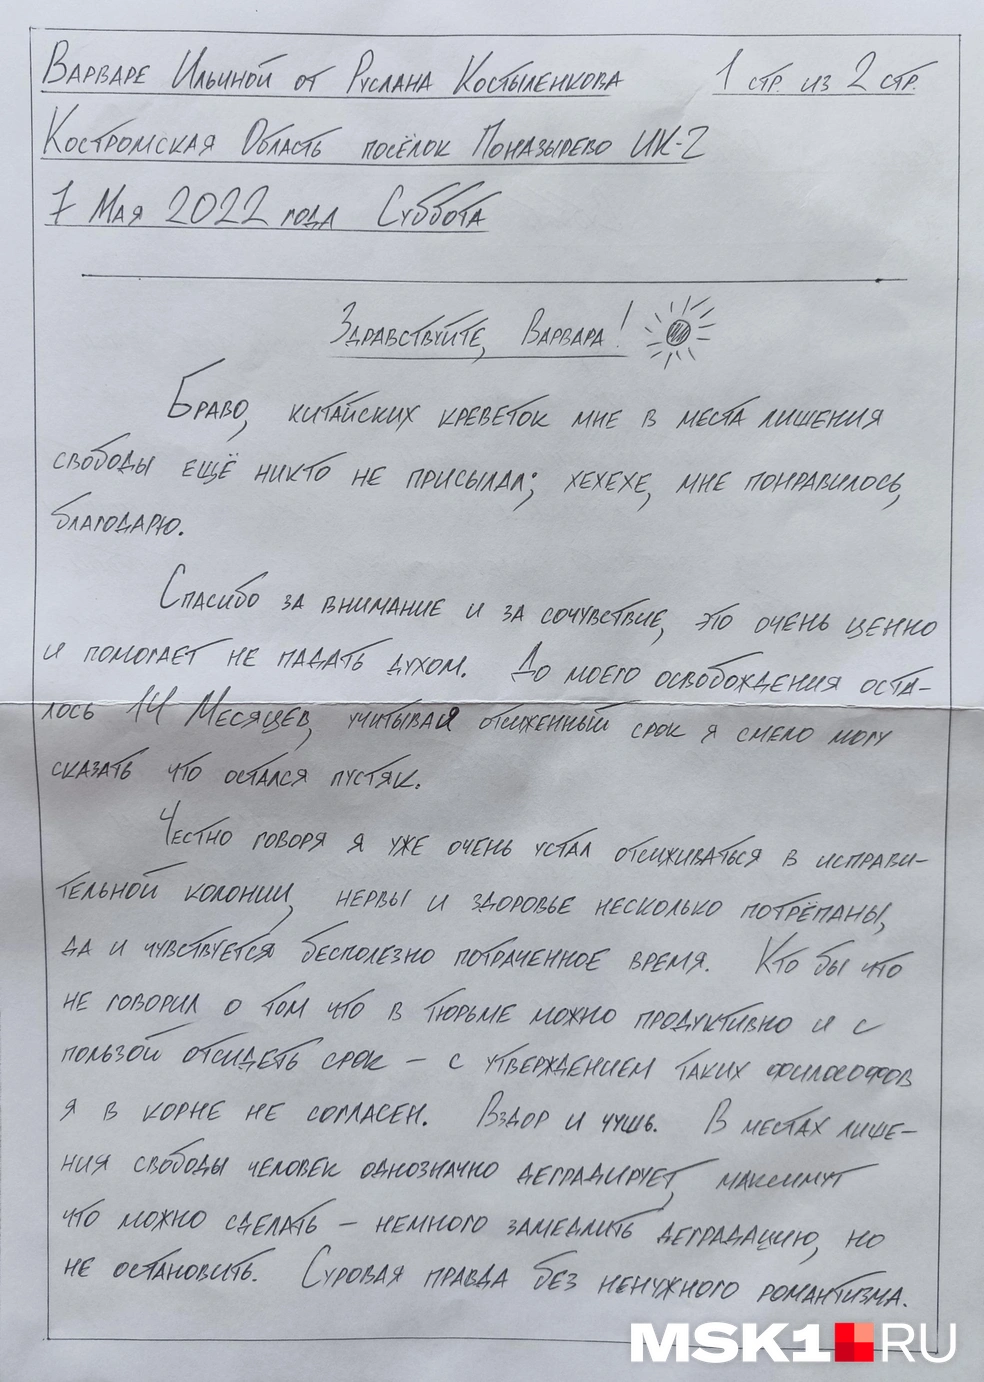 Варваре Ильиной от Руслана Костыленкова 1 стр. из 2 стр.
Костромская Область посёлок Поназырево ИК-2
7 Мая 2022 года Суббота
Здравствуйте, Варвара!
Браво, китайских креветок мне в места лишения
свободы ещё никто не присылал; хехехе, мне понравилось,
благодарю.
Спасибо за внимание и за сочувствие, это очень ценно
и помогает не падать духом. До моего освобождения оста-
лось 14 Месяцев, учитывая отсиженный срок я смело могу
сказать что остался пустяк.
Честно говоря я уже очень устал отсиживаться в исправи-
тельной колонии, нервы и здоровье несколько потрёпаны,
да и чувствуется бесполезно потраченное время. Кто бы что
не говорил о том что в тюрьме можно продуктивно и с
пользой отсидеть срок – с утверждением таких философов
я в корне не согласен. Вздор и чушь. В местах лише-
ния свободы человек однозначно деградирует, максимум
что можно сделать – немного замедлить деградацию, но
не остановить. Суровая правда без ненужного романтизма.
MSK1.RU